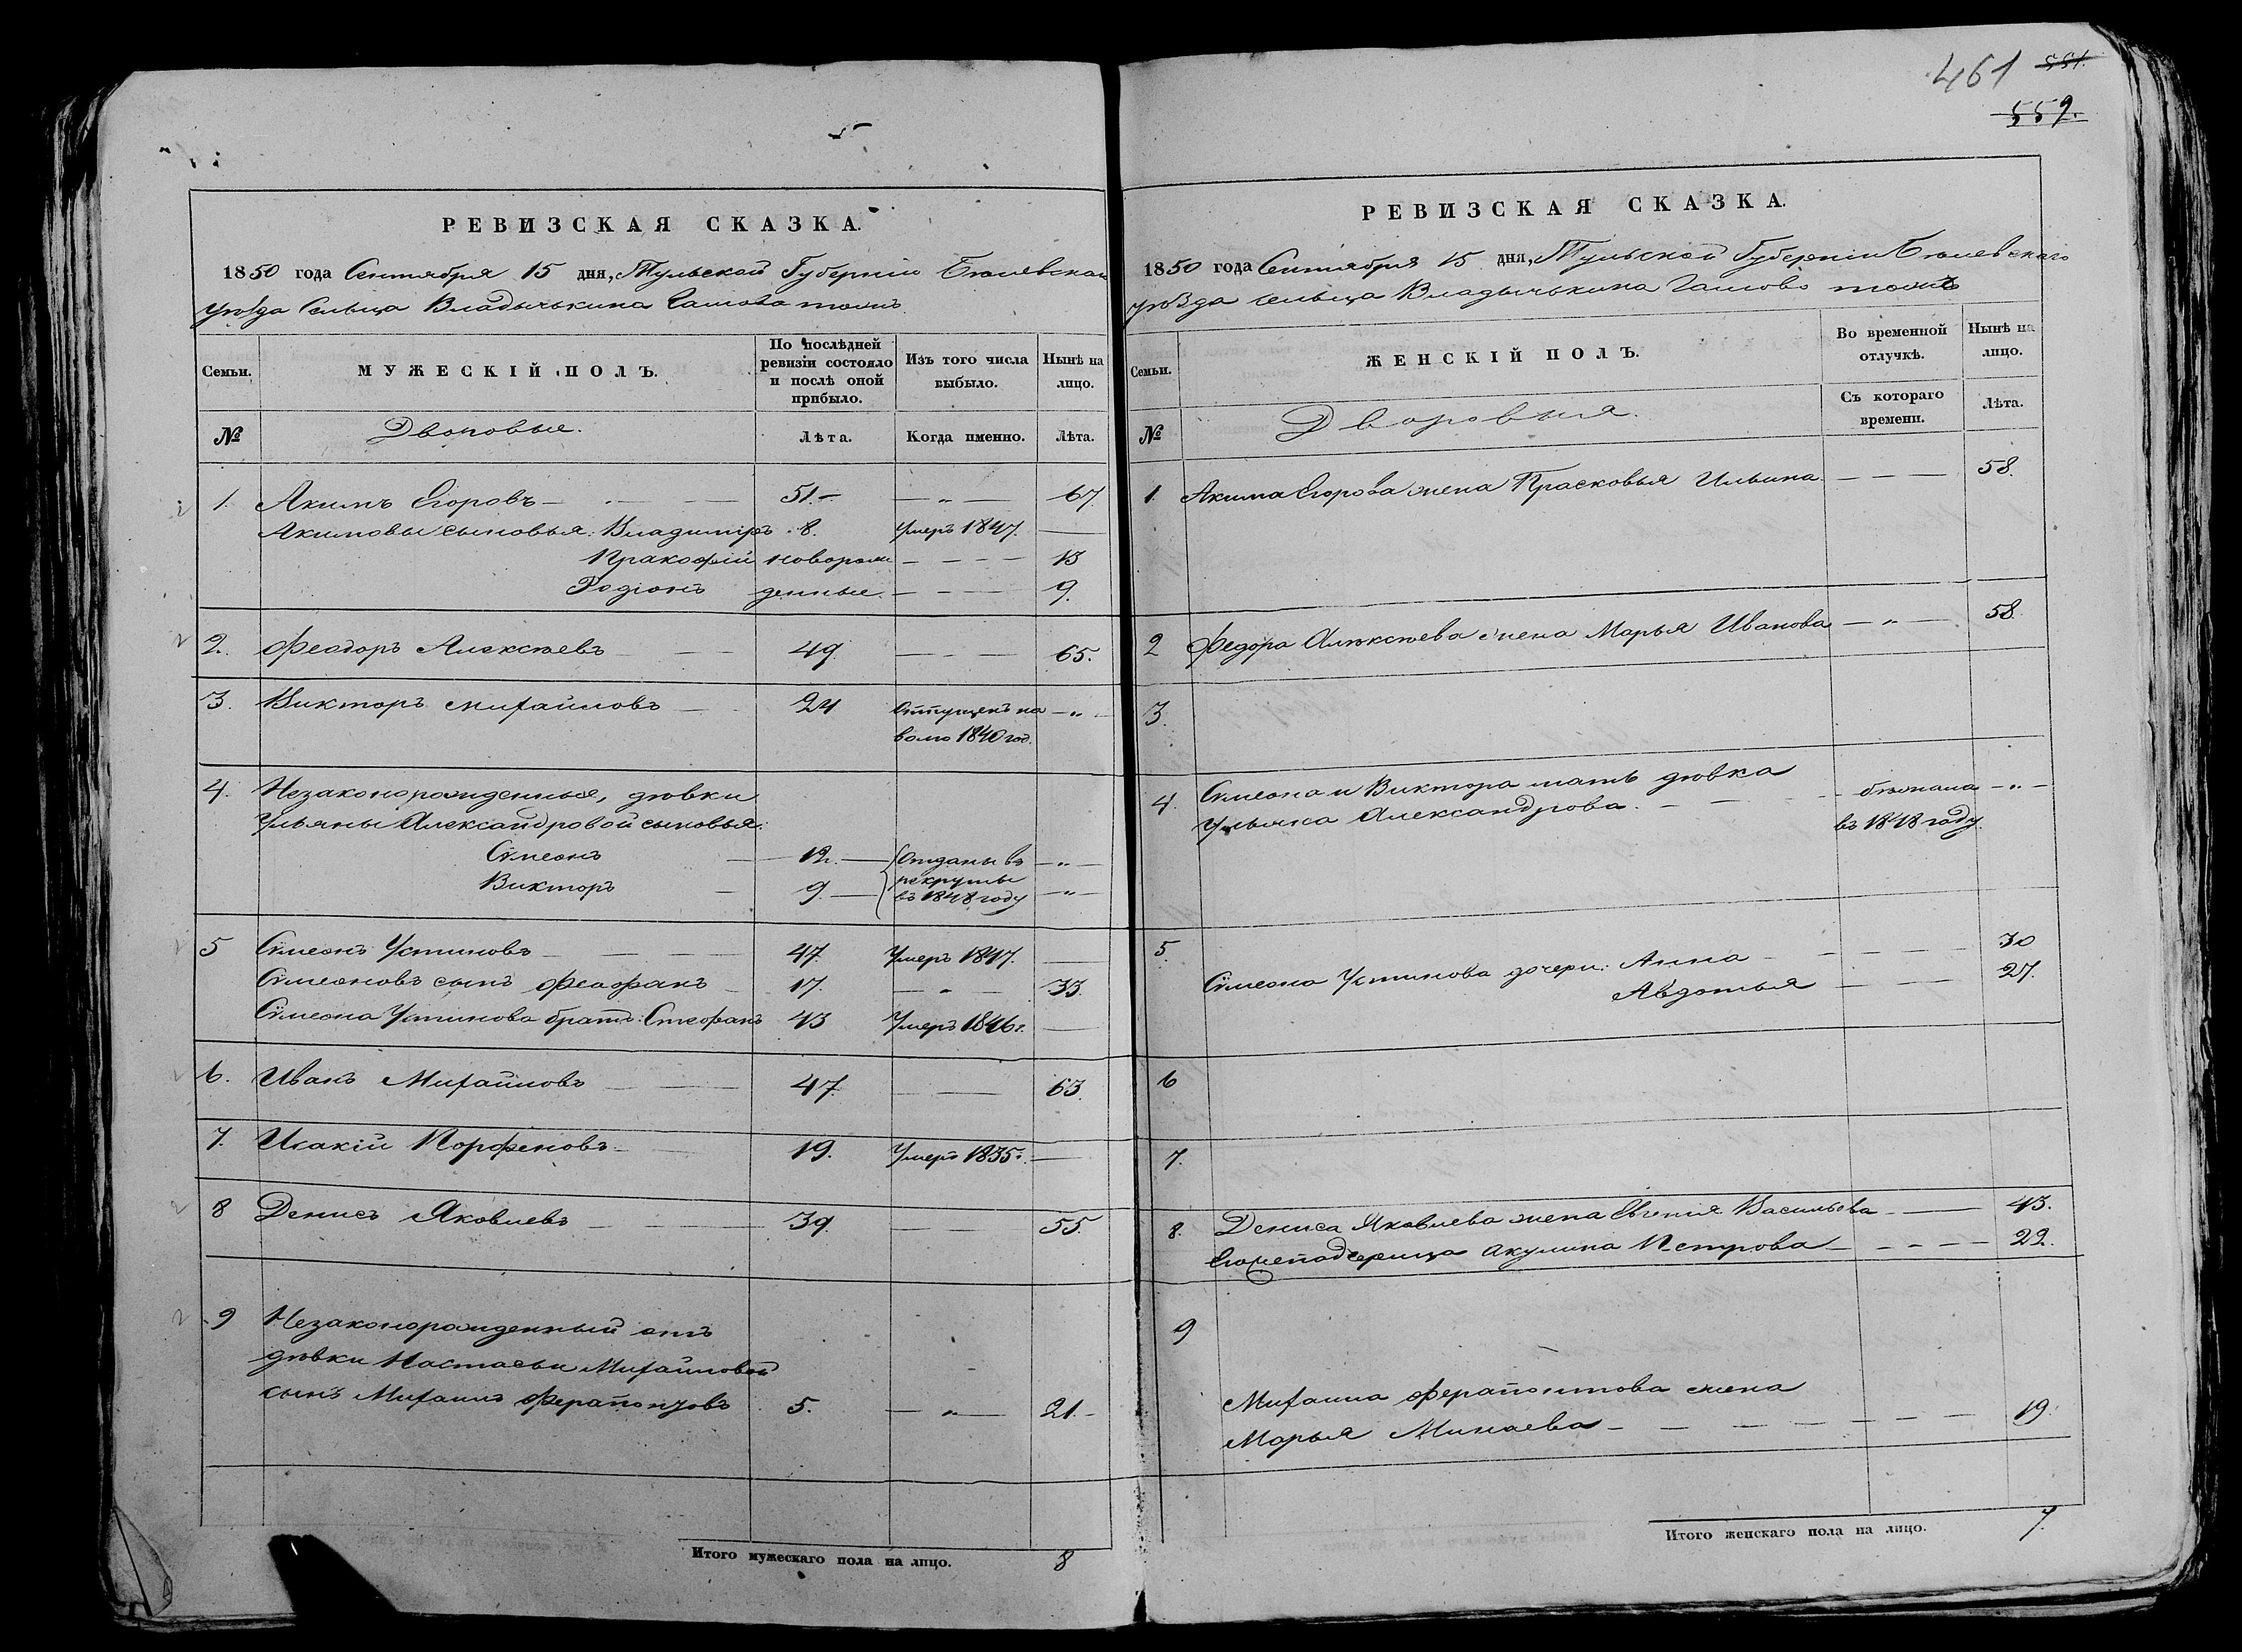 5
РЕВИЗСКАЯ СКАЗКА.
1850 года Сентября 15 дня, Тульской Губерніи Бѣлевскаго
уѣзда Сельца Владычькина тожъ
Семьи.
МУЖЕСКІЙ ПОЛЪ.
По послѣдней ревизіи состояло и послѣ оной прибыло.
Изъ того числа выбыло.
Нынѣ на лицо.
№
Дворовые.
Лѣта.
Когда именно.
Лѣта.
1. Акимъ Егоровъ 51. — „ — 67.
Акимовы сыновья: Владимиръ 8. Умеръ 1847.
Пракофій новорож 13
Родіонъ денные. 9.
2. Феодоръ Алексѣевъ 49 65.
3. Викторъ Михайловъ 24 Отпущенъ на — „ —
волю 1840 год.
4. Незаконорожденныя, дѣвки
Ульяны Александровой сыновья:
Симеонъ 12. Отданы въ — „ —
рекруты
Викторъ 9. въ 1848 году — „ —
5 Симеонъ Устиновъ 47. Умеръ 1847.
Симеоновъ сынъ Феофанъ 17. 33.
Симеона Устинова братъ: Стефанъ 43 Умеръ 1846 г.
6. Иванъ Михайловъ 47. 63.
7. Исакій Порфеновъ 19. Умеръ 1835 г.
8 Денисъ Яковлевъ 39. 55.
9 Незаконорожденный отъ
дѣвки Настасьи Михайловой
сынъ Михаилъ Ферапонтовъ 5. — „ — 21.
Итого мужескаго пола на лицо. 8
461 551.
559.
РЕВИЗСКАЯ СКАЗКА.
1850 года Сентября 15 дня, Тульской Губерніи Бѣлевскаго
уѣзда сельца Владычькина тожъ
Семьи.
ЖЕНСКІЙ ПОЛЪ.
Во временной отлучкѣ.
Нынѣ на лицо.
№
Дворовыя.
Съ котораго времени.
Лѣта.
1. Акима Егорова жена Прасковья Ильина 58.
2 Федора Алѣксѣева жена Марья Иванова — „ — 58.
3.
4. Симеона и Виктора мать дѣвка бѣжала — „ —
Ульяна Александрова. въ 1818 году.
5. Симеона Устинова дочери: Анна 30
Авдотья 27.
6
7.
8. Дениса Яковлева жена Евгенія Васильева 43.
Акулина Петрова 22.
9
Михаила Ферапонтова жена
Марья Минаева 19.
Итого женскаго пола на лицо. 7.